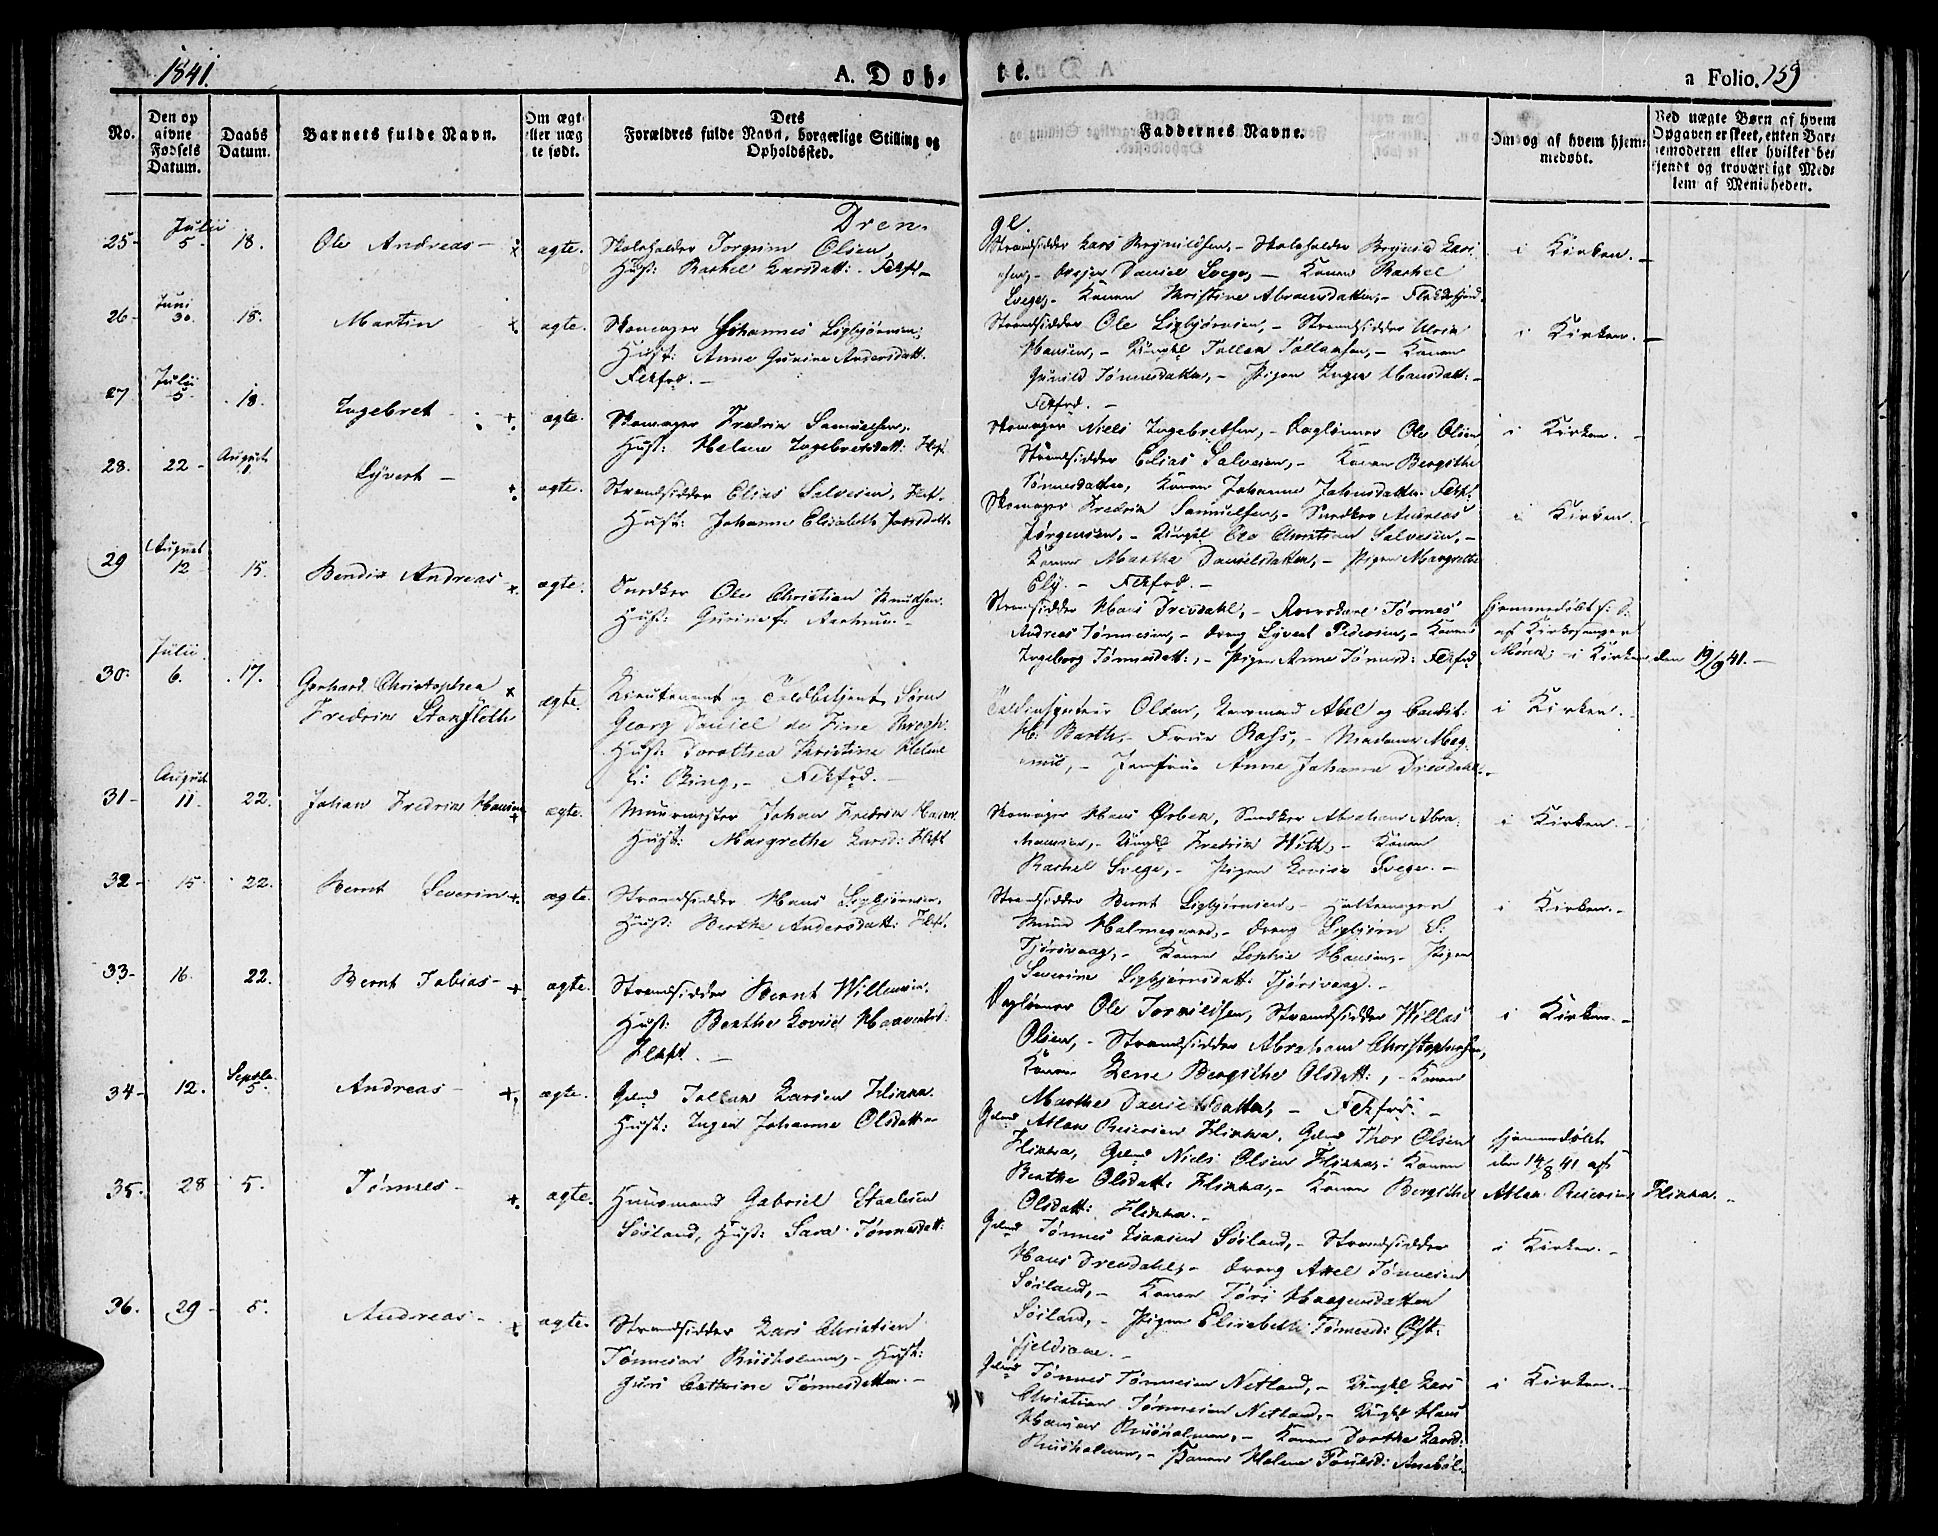 1841.
A. Døb-
te.
a Folio. 159
No.
Den op
givne
Fødsels
Datum.
Daabs
Datum.
Barnets fulde Navn.
Om ægt-
eller uæg
te født.
Dets
Forældres fulde Navn, borgerlige Stilling og
Opholdssted.
Faddernes Navne.
Om og af hvem hjem-
medøbt.
Ved uægte Børn af hvem
Opgaven er skeet, enten Bar-
nemoderen eller hvilket be-
kjendt og troværdigt Med-
lem af Menigheden.
Dren-
ge.
25- Julii 5. 18. Ole Andreas- ægte. Skoleholder Jorgrim Olsen,
Hust: Rachel Larsdatt:. Fekfd-
Strandsidder Lars
Daniel Svege, - Konen Rachel
Svege,- Konen Christine Abramsdatter,- Flekkefjord.
i Kirken.-
26- Juni 30. 18. Martin ægte. Skomager Johannes Sigbjørnsen,
Hust: Anne Gurine Andersdatt.
Fekfrd.-
Strandsidder Ole Sigbjørnsen,- Strandsidder Ulrik
Hansen,- Ungkl Tollak Tollaksen,- Konen
Gunild Tønnesdatter,- Pigen Inger Hansdatt:-
Fekfrd.-
i Kirken.-
27 Julii 5. 18. Ingebret ægte. Skomager Fredrik Samuelsen,
Hust: Helene Ingebretsdatt:
Skomager Niels Ingebretsen,- Dagleiner Ole Olsen
Strandsidder Elias Salvesen,- Konen Bergithe
Tønnesdatter, Konen Johanne Johnsdatter.
i Kirken.-
28. 22- August 1. Syvert- ægte. Strandsidder Elias Salvesen,
Hust: Johanne Elisabeth
Skomager Fredrik Samuelsen,- Snedker Andreas
Jørgensen,- Ungkl Ole Christian Salvesen,-
Konen Martha Danielsdatter,- Pigen Margrethe
Ely.- Fekfrd.-
i Kirken.
29 August 12 15. Bendix Andreas- ægte. Snedker Ole Christian Knudsen.
Hust: Gurine f: Aarhuus.-
Strandsidder Hans Drevdahl,- Tønnes
Andreas Tønnesen,- Dreng Syvert Pedersen,- Konen
Ingeborg Tønnesdatt:,- Pigen Anne Tønnesd: Fekfrd
hjemmedøbt s: D:
af Kirkesanger
i Kirken den 19/9 41.-
30. Julii 6. 17. Gerhard Christopher
Fredrik ægte. Lieutenant og Toldbetjent Søren
Georg Daniel de Fine
Hust: Dorothea Christine Helene
f: Bing,- Fekfrd.-
Toldinspecteur Olsen, Kjøpmand Abel og
H: Barth,- Frue Ross,- Madame
Jomfrue Anne Johanna Drevdahl.-
i Kirken.-
31- August 11. 22. Johan Fredrik Hansen ægte. Muurmester Johan Fredrik Hansen.
Hust: Margrethe Larsd:
Skomager Hans Ørbek, Snedker Abraham Abra-
hamsen,- Ungkl Fredrik With,- Konen
Rachel Svege,- Pigen Lovise Svege.-
i Kirken.-
32- 15 22. Bernt Severin ægte. Strandsidder Hans Sigbjørnsen,
Hust: Berthe Andersdatt:
Strandsidder Bernt Sigbjørnsen,-
Dreng Sigbjørn S:
Tjørsvaag,- Konen Sophie Hansen,- Pigen
Severine Sigbjørnsdatt: Tjørsvaag.-
i Kirken.-
33- 16. 22. Bernt Tobias- ægte. Strandsidder Bernt Willumsen.
Hust: Berthe Lovise
Dagleiner Ole Torkildsen, Strandsidder Willas
Olsen,- Strandsidder Abraham Christophersen,
Konen Lene Bergithe Olsdatt:,- Konen
Marthe Danielsdatter,- Fekfrd:-
i Kirken.-
34- 12. Septbr. 5. Andreas- ægte. Grmd Tollak Larsen Flikka.
Hust: Inger Johanne Olsdatter
Grmd Atlak Reiersen Flikka, Grmd Thor Olsen
Flikka, Grmd Niels Olsen Flikka,- Konen
Berthe Olsdatt: Flikka,- Konen Bergithe
Olsdatt: Flikka.-
hjemmedøbt
den 14/8 41 af
Atlak Reiersen Flikka.-
35. 28 5. Tønnes- ægte. Huusmand Gabriel Staalesen
Søiland, Hust: Sara Tønnesdatt:
Grmd Tønnes Søiland,- Strandsidder
Hans Drevdahl,- Dreng Axel Tønnesen
Søiland,- Konen Tøri Haagensdatter
Søiland,- Pigen Elisabeth Tønnesd:
i Kirken.-
36. 29- 5. Andreas- ægte. Strandsidder Lars Christian
Tønnesen Hust:
Guri Cathrine Tønnesdatter.-
Grmd Tønnes Tønnesen Netland,- Ungkl Lars
Christian Tønnesen Netland,- Ungkl Hans
Hansen Konen Dorthe Larsd:
Konen Helene
i Kirken.-